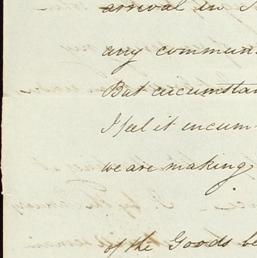 arrival in
any commun
But circumstan
I feel it incum
we are making
of the Goods be